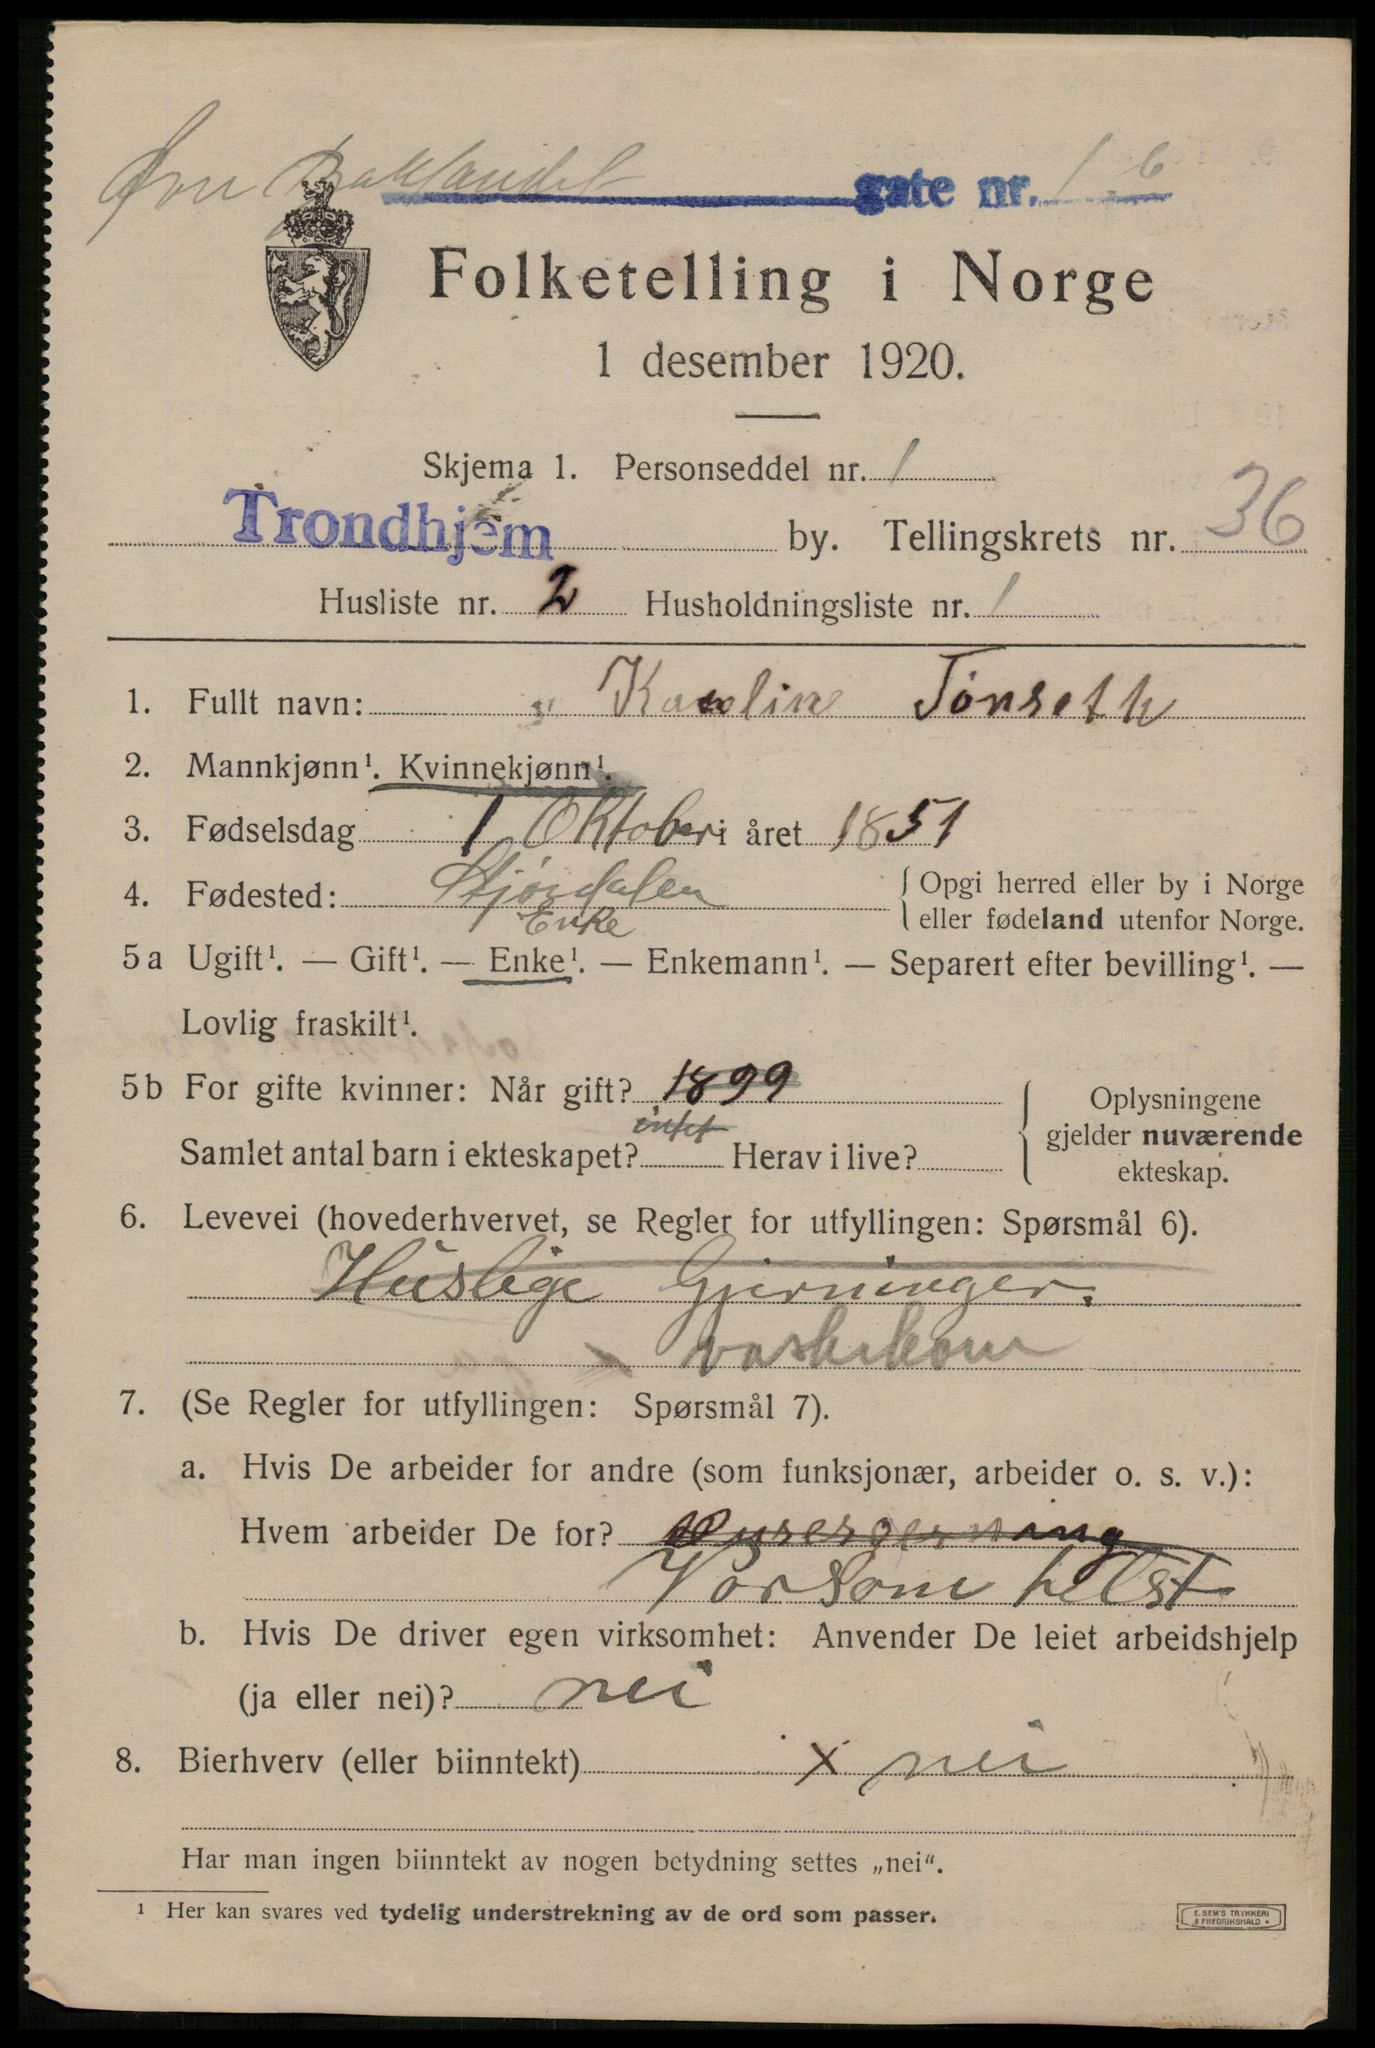 Øvre Baklandet gate nr. 1 b
Folketelling i Norge
1 desember 1920.
Skjema 1. Personseddel nr. 1
Trondhjem by. Tellingskrets nr. 36
Husliste nr. 2 Husholdningsliste nr. 1
1. Fullt navn: Karoline Tønseth
2. Mannkjønn¹. Kvinnekjønn¹.
3. Fødselsdag 1 Oktober i året 1851
4. Fødested: Stjørdalen { Opgi herred eller by i Norge
eller fødeland utenfor Norge.
Enke
5a Ugift¹. — Gift¹. — Enke¹. — Enkemann¹. — Separert efter bevilling¹. —
Lovlig fraskilt¹.
5b For gifte kvinner: Når gift? 1899
intet
Samlet antal barn i ekteskapet? Herav i live?
{ Oplysningene
gjelder nuværende
ekteskap.
6. Levevei (hovederhvervet, se Regler for utfyllingen: Spørsmål 6).
Huslige Gjerninger.
vaskekone
7. (Se Regler for utfyllingen: Spørsmål 7).
a. Hvis De arbeider for andre (som funksjonær, arbeider o. s. v.):
Hvem arbeider De for?
Vor som helst
b. Hvis De driver egen virksomhet: Anvender De leiet arbeidshjelp
(ja eller nei)? nei
8. Bierhverv (eller biinntekt) x nei
Har man ingen biinntekt av nogen betydning settes „nei".
¹ Her kan svares ved tydelig understrekning av de ord som passer.
E. SEM'S TRYKKERI
FREDRIKSHALD